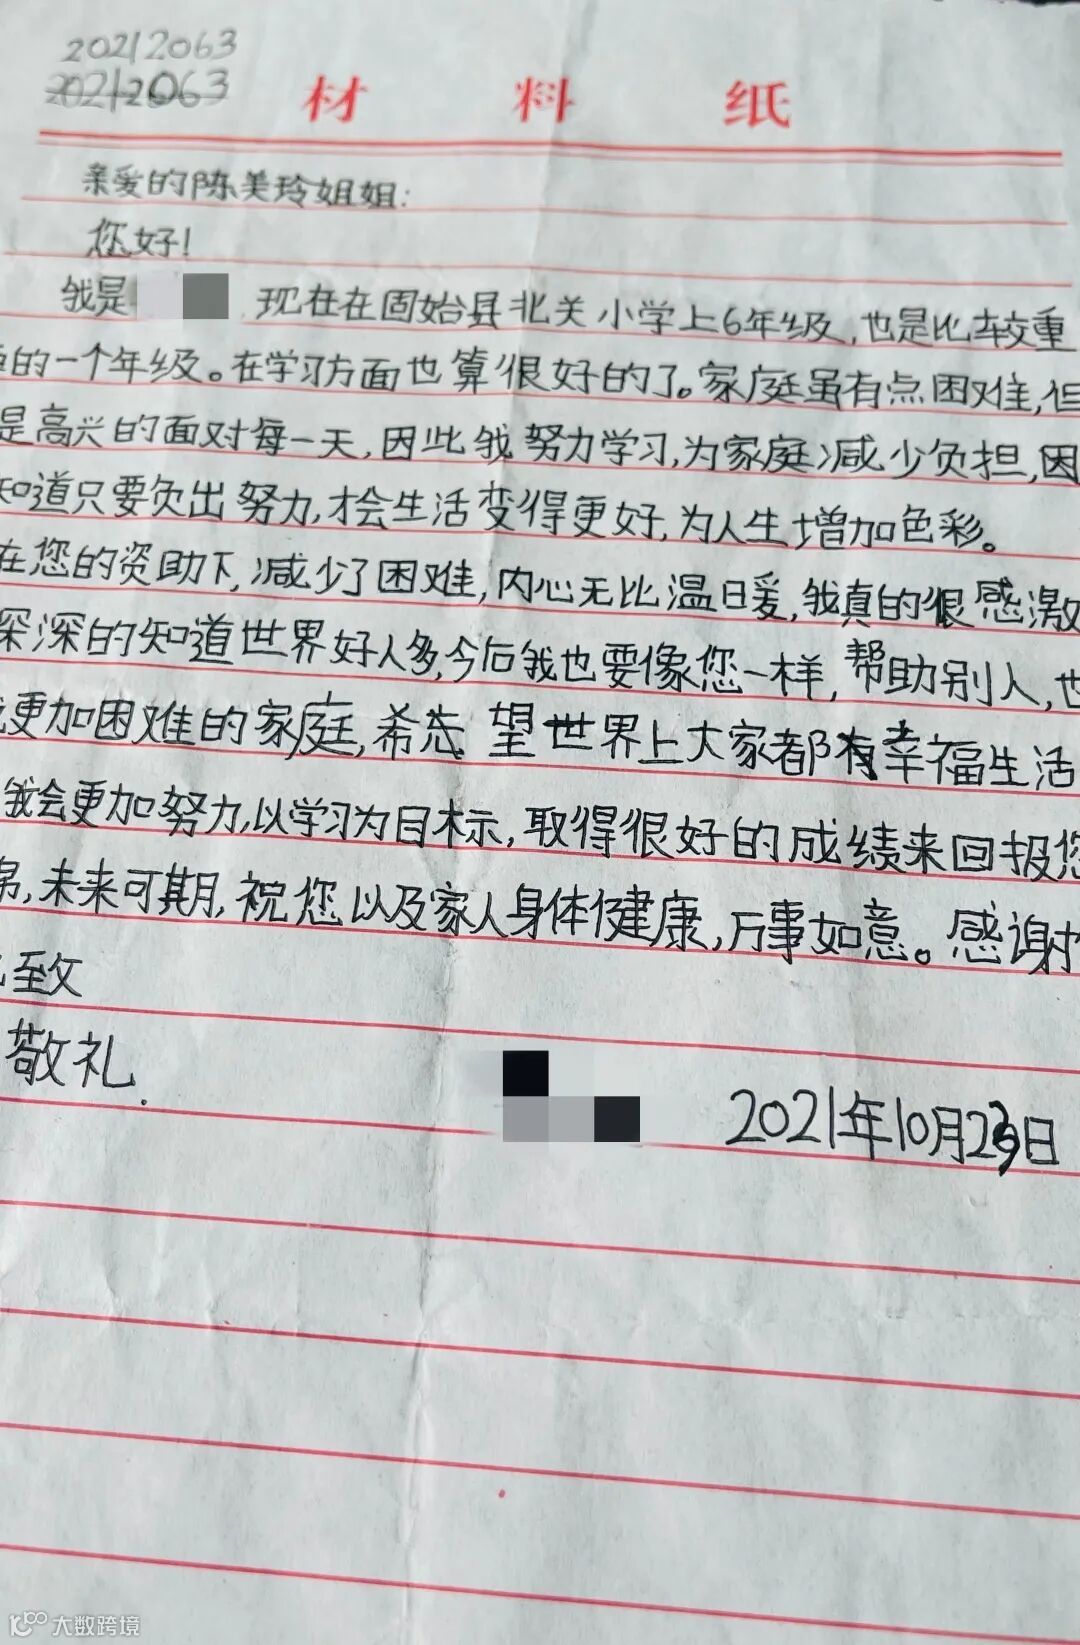 20212063
20212063
材料纸
亲爱的陈美玲姐姐:
您好!
我是 现在在固始县北关小学上6年级,也是比较重
的一个年级。在学习方面也算很好的了。家庭虽有点困难,但
是高兴的面对每一天,因此我努力学习,为家庭减少负担,因
知道只要负出努力,才会生活变得更好,为人生增加色彩。
在您的资助下,减少了困难,内心无比温暖,我真的很感激
深深的知道世界好人多,今后我也要像您一样,帮助别人,也
更加困难的家庭,希望世界上大家都有幸福生活
我会更加努力,以学习为目标,取得很好的成绩来回报您
,未来可期,祝您以及家人身体健康,万事如意。感谢
致
敬礼.
2021年10月23日
大数跨境